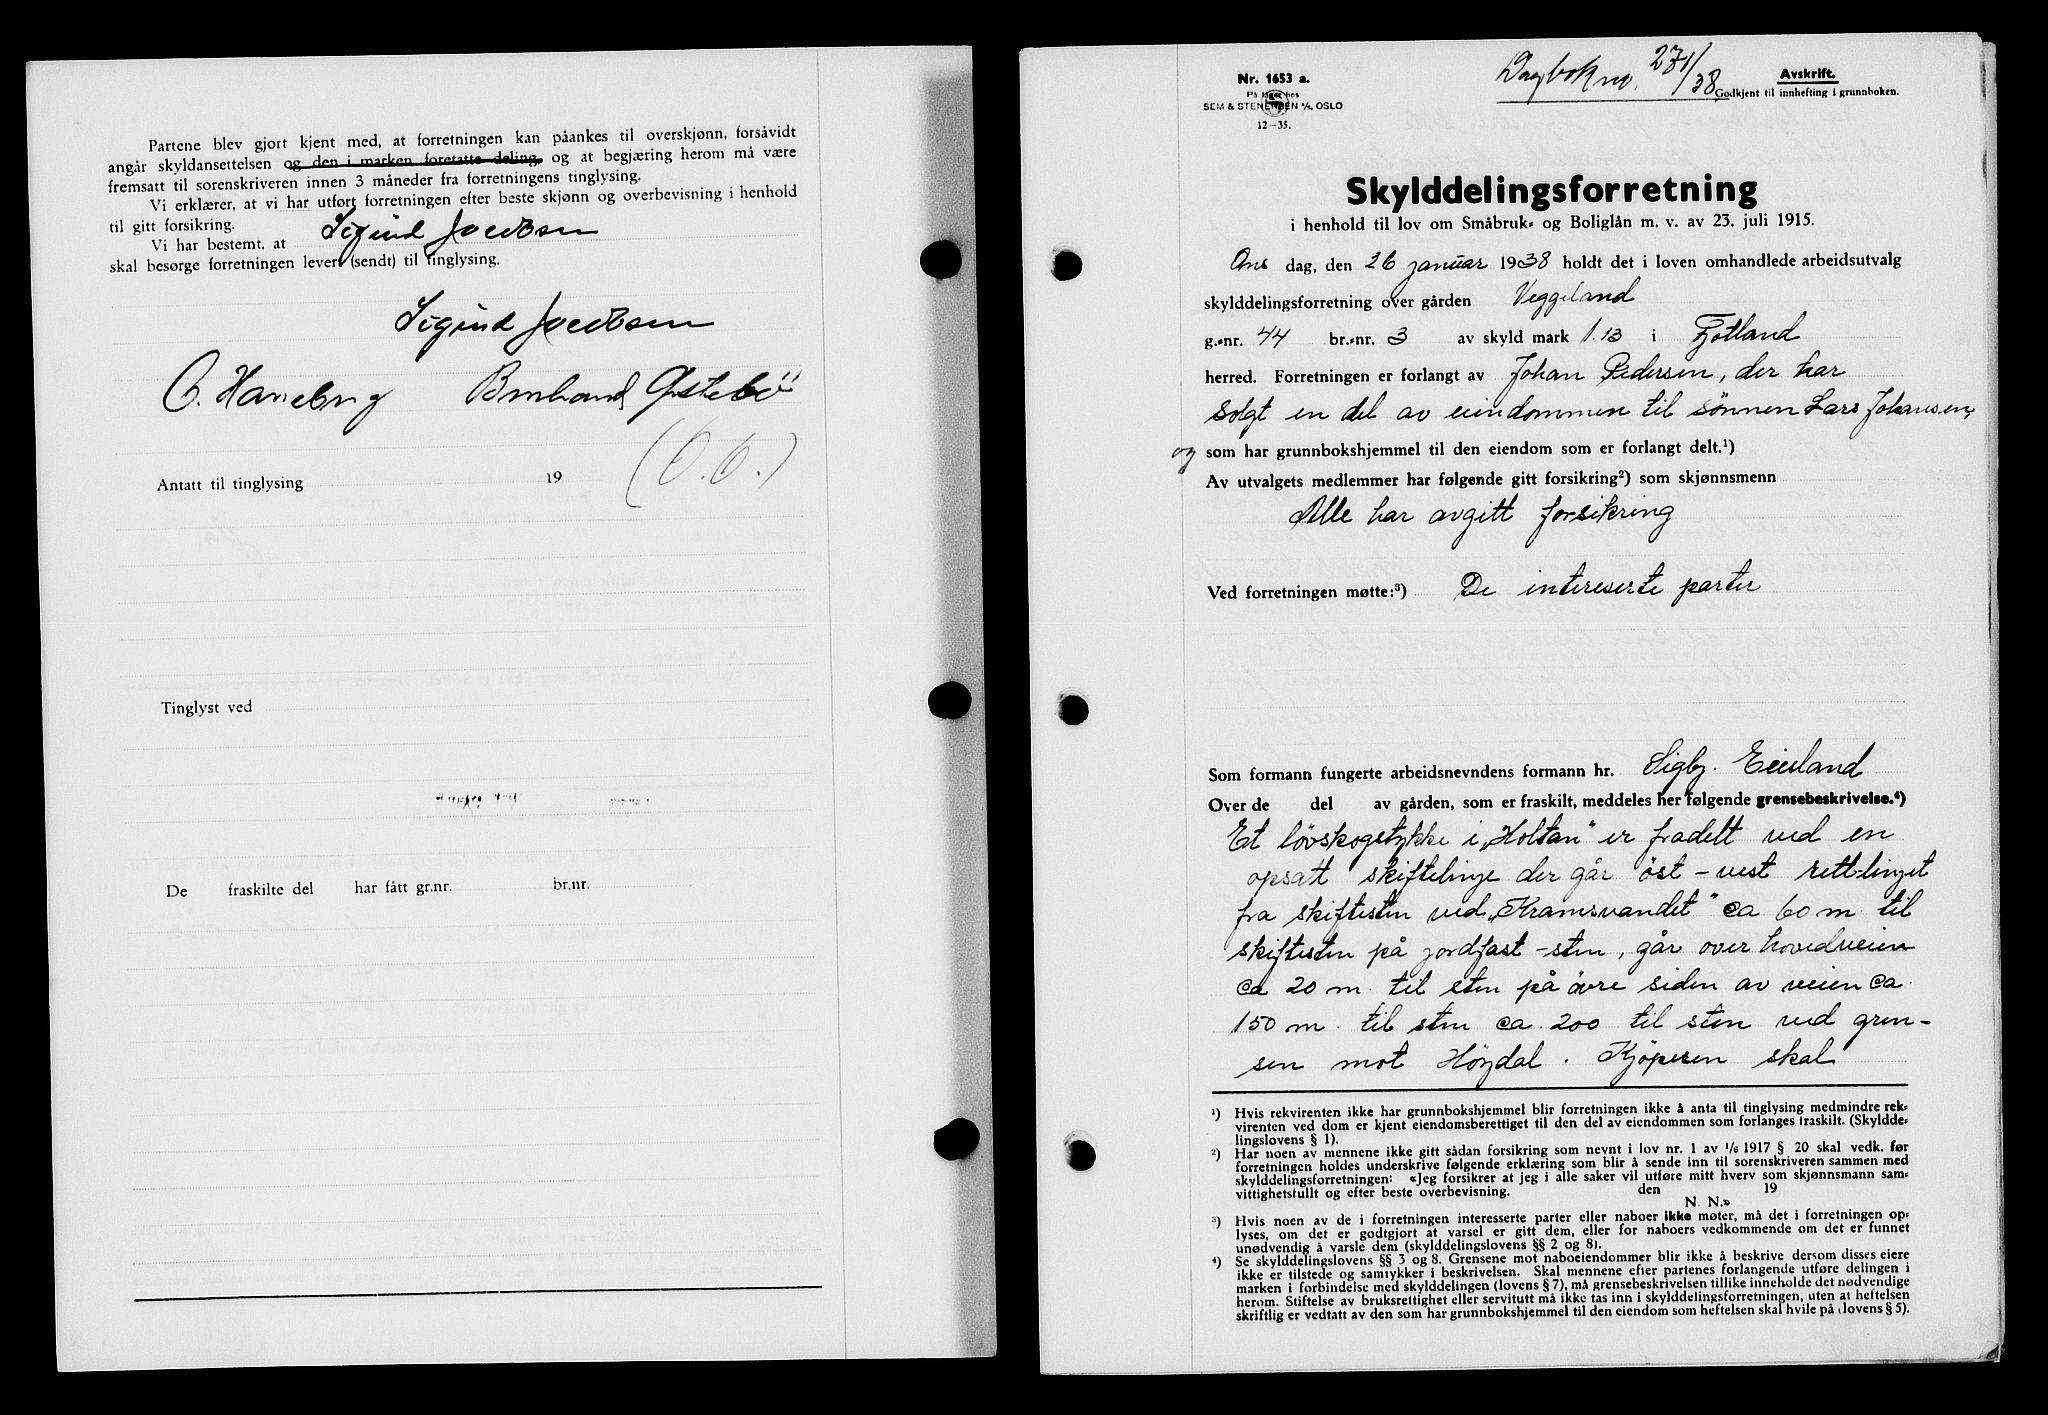 Partene blev gjort kjent med, at forretningen kan påankes til overskjønn, forsåvidt
angår skyldansettelsen og den i marken foretatte deling, og at begjæring herom må være
fremsatt til sorenskriveren innen 3 måneder fra forretningens tinglysing.
Vi erklærer, at vi har utført forretningen efter beste skjønn og overbevisning i henhold
til gitt forsikring.
Vi har bestemt, at Sigurd Jacobsen
skal besørge forretningen levert (sendt) til tinglysing.
Sigurd Jacobsen
O. Haneberg Bernhard Østebö
(O.O.)
Antatt til tinglysing 19
Tinglyst ved
De fraskilte del har fått gr.nr. br.nr.
Nr. 1653 a.
På lager hos
SEM & STENERSEN A/S, OSLO
12—35.
Dagbok no. 271/38
Avskrift.
Godkjent til innhefting i grunnboken.
Skylddelingsforretning
i henhold til lov om Småbruk- og Boliglån m. v. av 23. juli 1915.
Ons dag, den 26 januar 1938 holdt det i loven omhandlede arbeidsutvalg
skylddelingsforretning over gården Veggeland
g.-nr. 44 br.-nr. 3 av skyld mark 1.13 i Fjotland
herred. Forretningen er forlangt av Johan Pedersen, der har
solgt en del av eiendommen til sønnen Lars Johansen,
og som har grunnbokshjemmel til den eiendom som er forlangt delt.¹)
Av utvalgets medlemmer har følgende gitt forsikring²) som skjønnsmenn
Alle har avgitt forsikring
Ved forretningen møtte:³) De intereserte parter
Som formann fungerte arbeidsnevndens formann hr. Sigbj. Eiesland
Over de del av gården, som er fraskilt, meddeles her følgende grensebeskrivelse.⁴)
Et løvskogstykke i „Holtan" er fradelt ved en
opsatt skiftelinje der går öst - vest rettlinjet
fra skiftesten ved „Kramsvandet" ca 60 m til
skiftesten på jordfast - sten, går over hovedveien
ca 20 m. til sten på övre siden av veien ca
150 m. til sten ca. 200 til sten ved gren-
sen mot Höydal. Kjöperen skal
¹) Hvis rekvirenten ikke har grunnbokshjemmel blir forretningen ikke å anta til tinglysing medmindre rek-
virenten ved dom er kjent eiendomsberettiget til den del av eiendommen som forlanges fraskilt. (Skyldde-
lingslovens § 1).
²) Har noen av mennene ikke gitt sådan forsikring som nevnt i lov nr. 1 av 1/6 1917 § 20 skal vedk. før
forretningen holdes underskrive følgende erklæring som blir å sende inn til sorenskriveren sammen med
skylddelingsforretningen: «Jeg forsikrer at jeg i alle saker vil utføre mitt hverv som skjønnsmann sam-
vittighetsfullt og efter beste overbevisning. den 19
N. N.»
³) Hvis noen av de i forretningen interesserte parter eller naboer ikke møter, må det i forretningen op-
lyses, om det er godtgjort at varsel er gitt dem, eller for naboers vedkommende om det er funnet
unødvendig å varsle dem (skylddelingslovens §§ 2 og 8).
⁴) Se skylddelingslovens §§ 3 og 8. Grensene mot naboeiendommer blir ikke å beskrive dersom disses eiere
ikke er tilstede og samtykker i beskrivelsen. Skal mennene efter partenes forlangende utføre delingen i
marken i forbindelse med skylddelingen (lovens § 7), må grensebeskrivelsen tillike inneholde det nødvendige
herom. Stiftelse av bruksrettighet eller servitutt må ikke tas inn i skylddelingsforretningen, uten at heftelsen
skriftlig er vedtatt av den som har grunnbokshjemmel til den eiendom som heftelsen skal hvile på (lovens § 5).